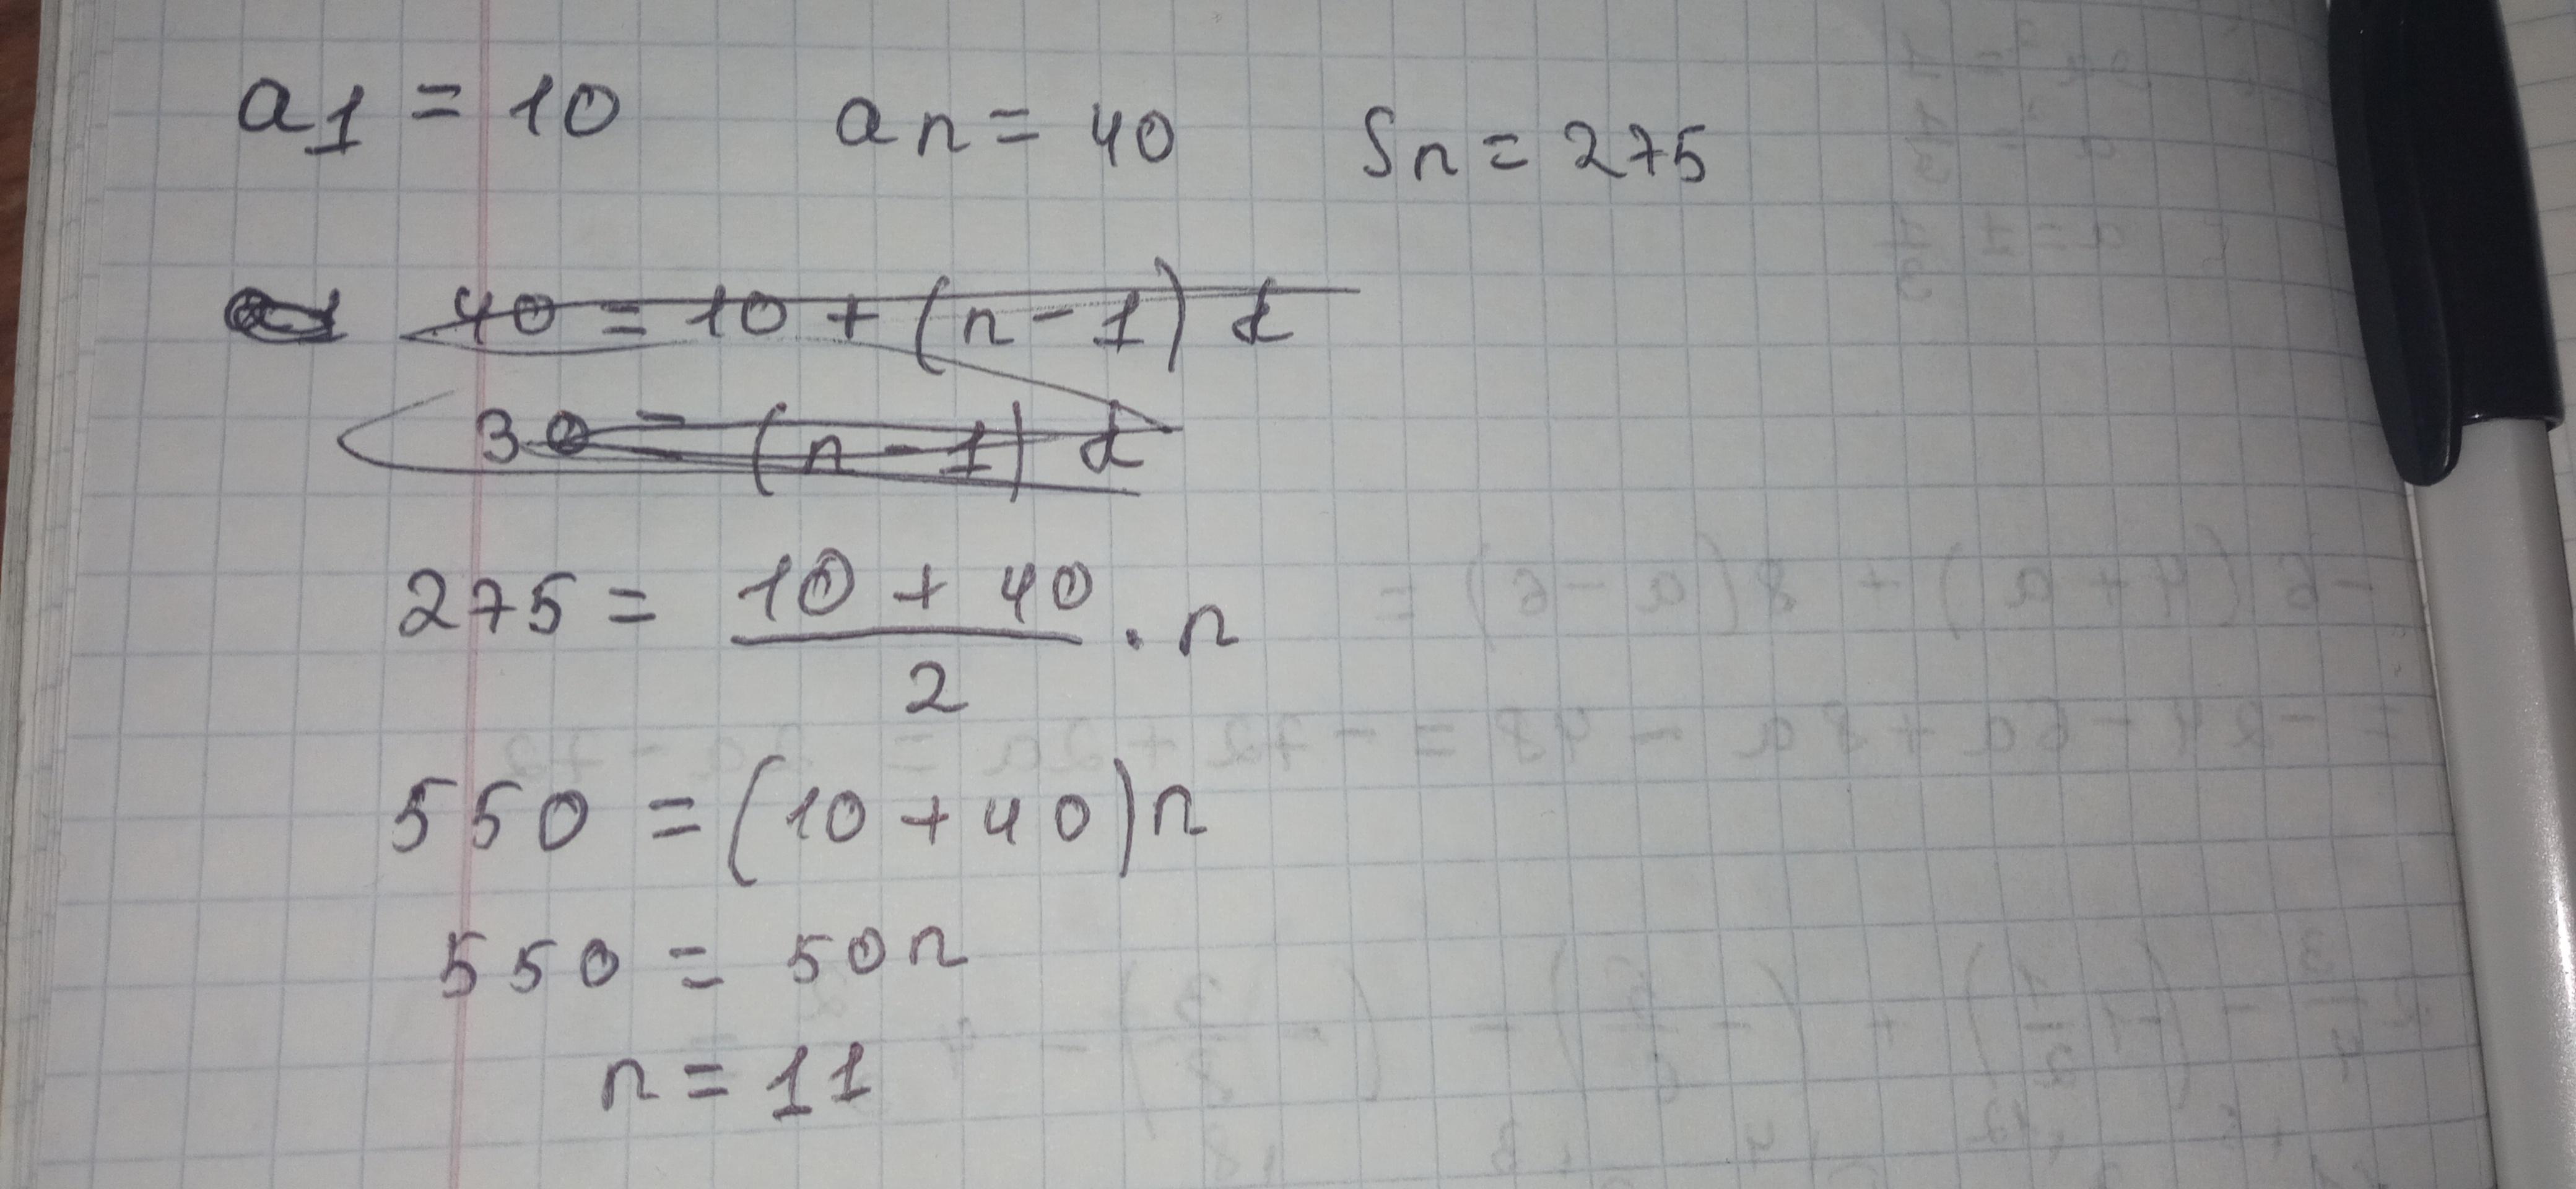 a1 = 10 an = 40 Sn = 275
40 = 10 + (n - 1) d
30 = (n - 1) d
275 = (10 + 40)/2 . n
550 = (10 + 40)n
550 = 50n
n = 11